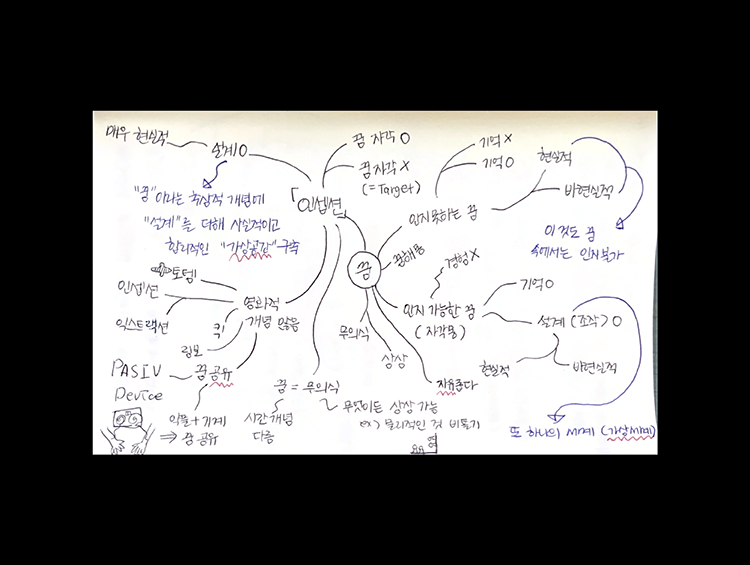 매우 현실적
설계 O
"꿈"이라는 추상적 개념에
"설계"를 더해 사실적이고
합리적인 "가상공간" 구축
꿈 자각 O
꿈 자각 X
(=Target)
「인셉션」
기억 X
기억 O
현실적
비현실적
인지못하는 꿈
이 것도 꿈
속에서는 인지불가
꿈
꿈해몽
경험 X
인지 가능한 꿈
(자각몽)
기억 O
설계 (조작) O
현실적
비현실적
또 하나의 세계 (가상세계)
무의식
상상
자유롭다
토템
인셉션
익스트랙션
영화적
개념 많음
킥
림보
꿈 공유
PASIV
Device
약물 + 기계
⇒ 꿈 공유
꿈 = 무의식
시간개념
다름
무엇이든 상상 가능
ex) 물리적인 것 비틀기